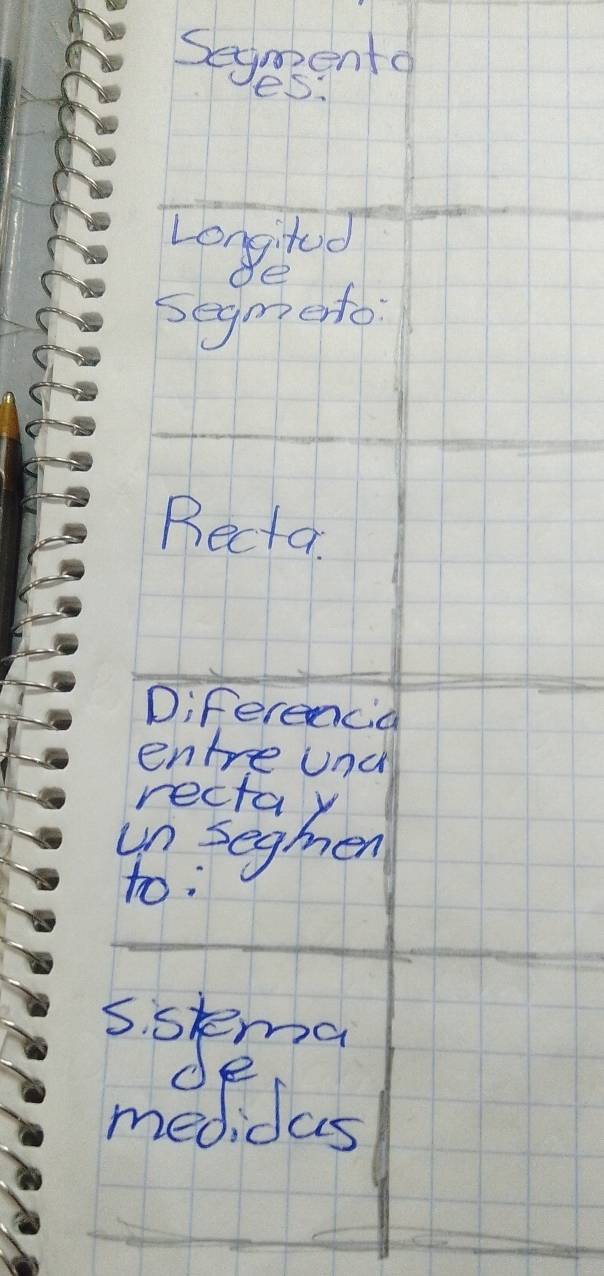 Segmento
es:
Longitud
de
segmento:
Recta:
Diferencia
entre una
recta y
un segmen
to:
Sistema
de
medidas